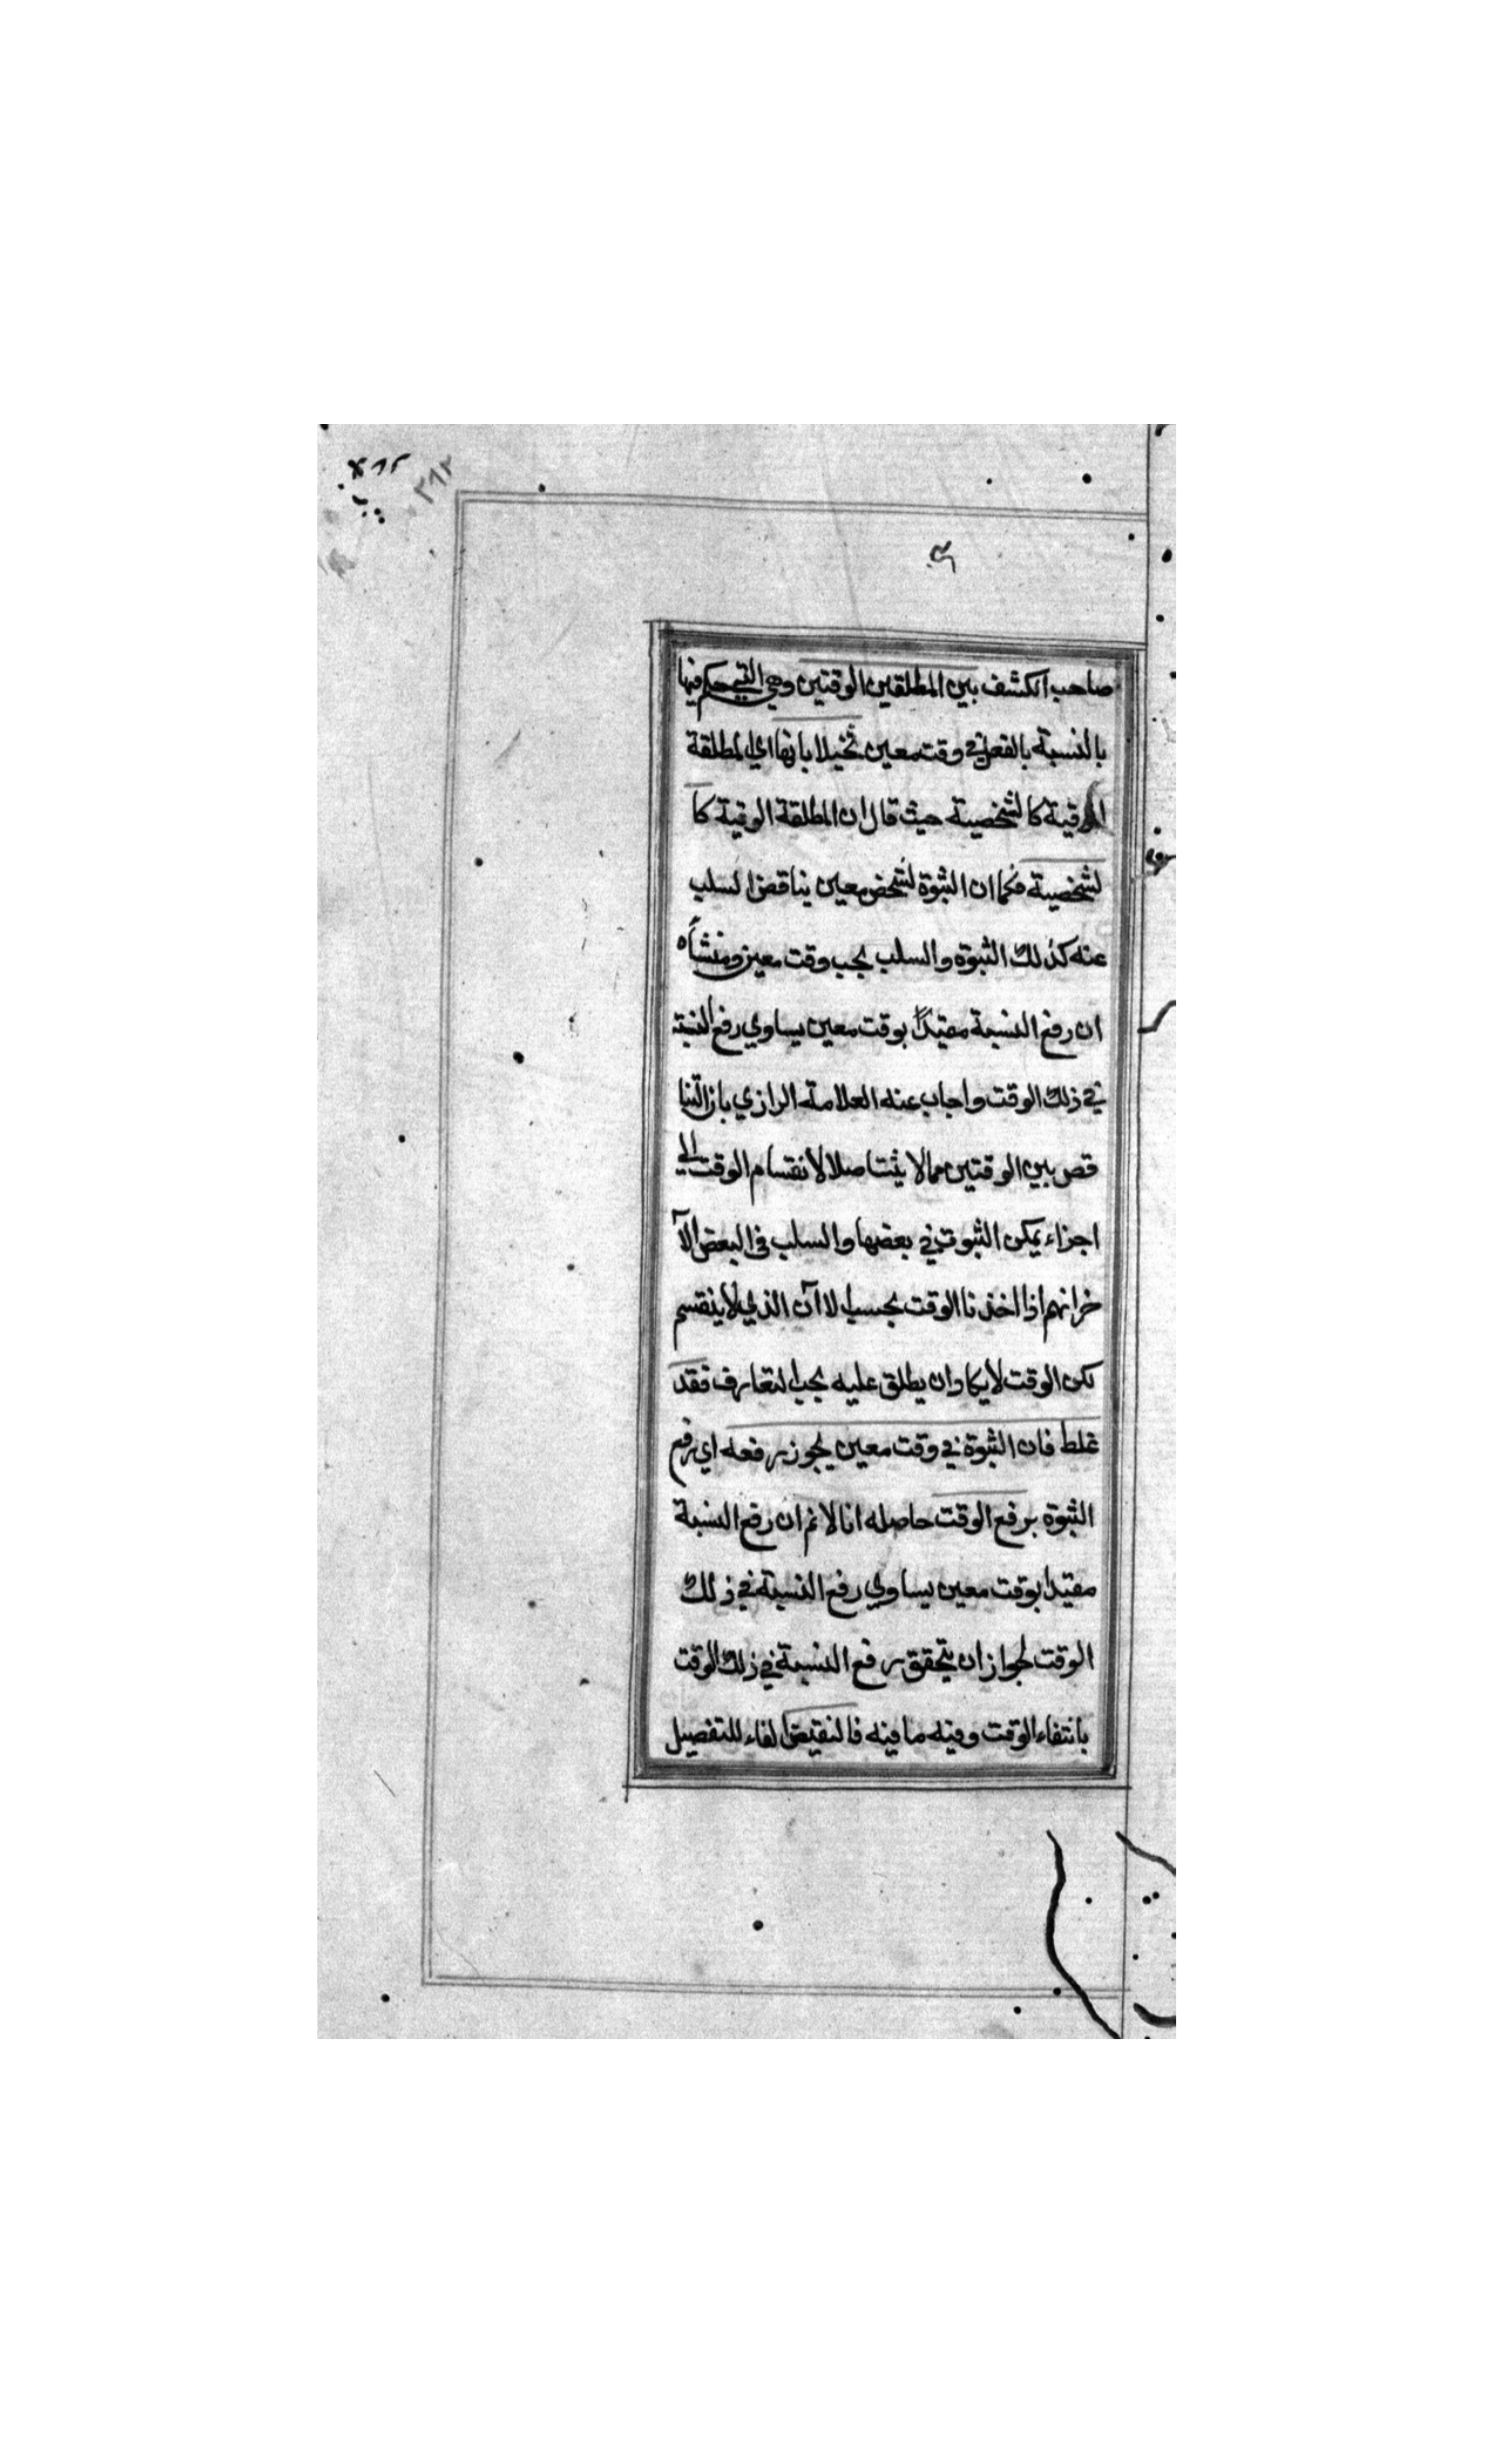 صاحب الكشف بين المطلقين الوقتين وهي التي حكم فيها
بالنسبة بالفعل في وقت معين تخيلا بانها اي المطلقة
الوقية كالشخصية حيث قال ان المطلقة الوقية كا
لشخصية فكما ان الثبوة لشخص معين يناقض السلب
عنه كذلك الثبوة والسلب بحب وقت معين ومنشأه
ان رفع النسبة مقيداً بوقت معين يساوي رفع النسبة
في ذلك الوقت واجاب عنه العلامة الرازي بان التنا
قص بين الوقتين ممالا يثبت اصلا لانقسام الوقت الي
اجزاء يمكن الثبوت في بعضها والسلب في البعض الآ
خر انهم اذا اخذنا الوقت بحسب الاآن الذي لا ينقسم
لكن الوقت لا يكاد ان يطلق عليه بحب التعارف فقد
غلط فان الثبوة في وقت معين يجوز رفعه اي رفع
الثبوة برفع الوقت حاصله انا لانم ان رفع النسبة
مقيدا بوقت معين يساوي رفع النسبة في ذلك
الوقت لجواز ان يتحقق رفع النسبة في ذلك الوقت
بانتفاء الوقت وفيه ما فيه فالنقيض الفاء للتفصيل